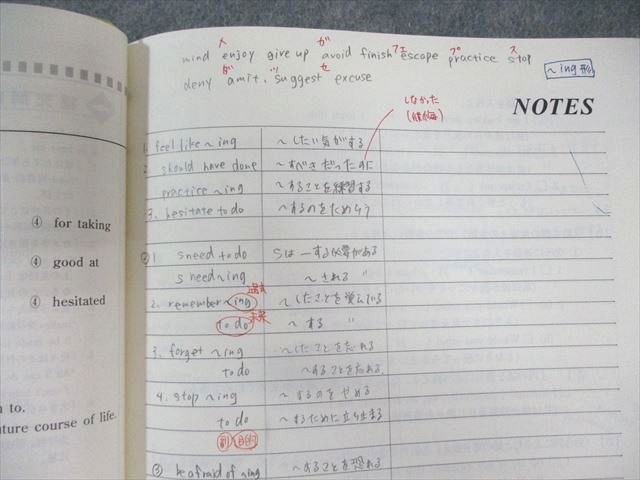 メ ガ フェ プ ス
mind enjoy give up avoid finish escape practice stop
ダ ッ セ
deny amit. suggest excuse
~ing形
しなかった
(後悔)
NOTES
1. feel like ~ing ~したい気がする
2. should have done ~すべきだったのに
practice ~ing ~することを練習する
3. hesitate to do ~するのをためらう
② 1 s need to do Sは~する必要がある
s need ~ing ~される 〃
過去
2. remember ~ing ~したことを覚えている
未来
to do ~する 〃
3. forget ~ing ~したことを忘れる
to do ~することを忘れる
4. stop ~ing ~するのをやめる
to do ~するために立ち止まる
副 目的
③ be afraid of ~ing ~することを恐れる
④ for taking
④ good at
④ hesitated
n to.
uture course of life.